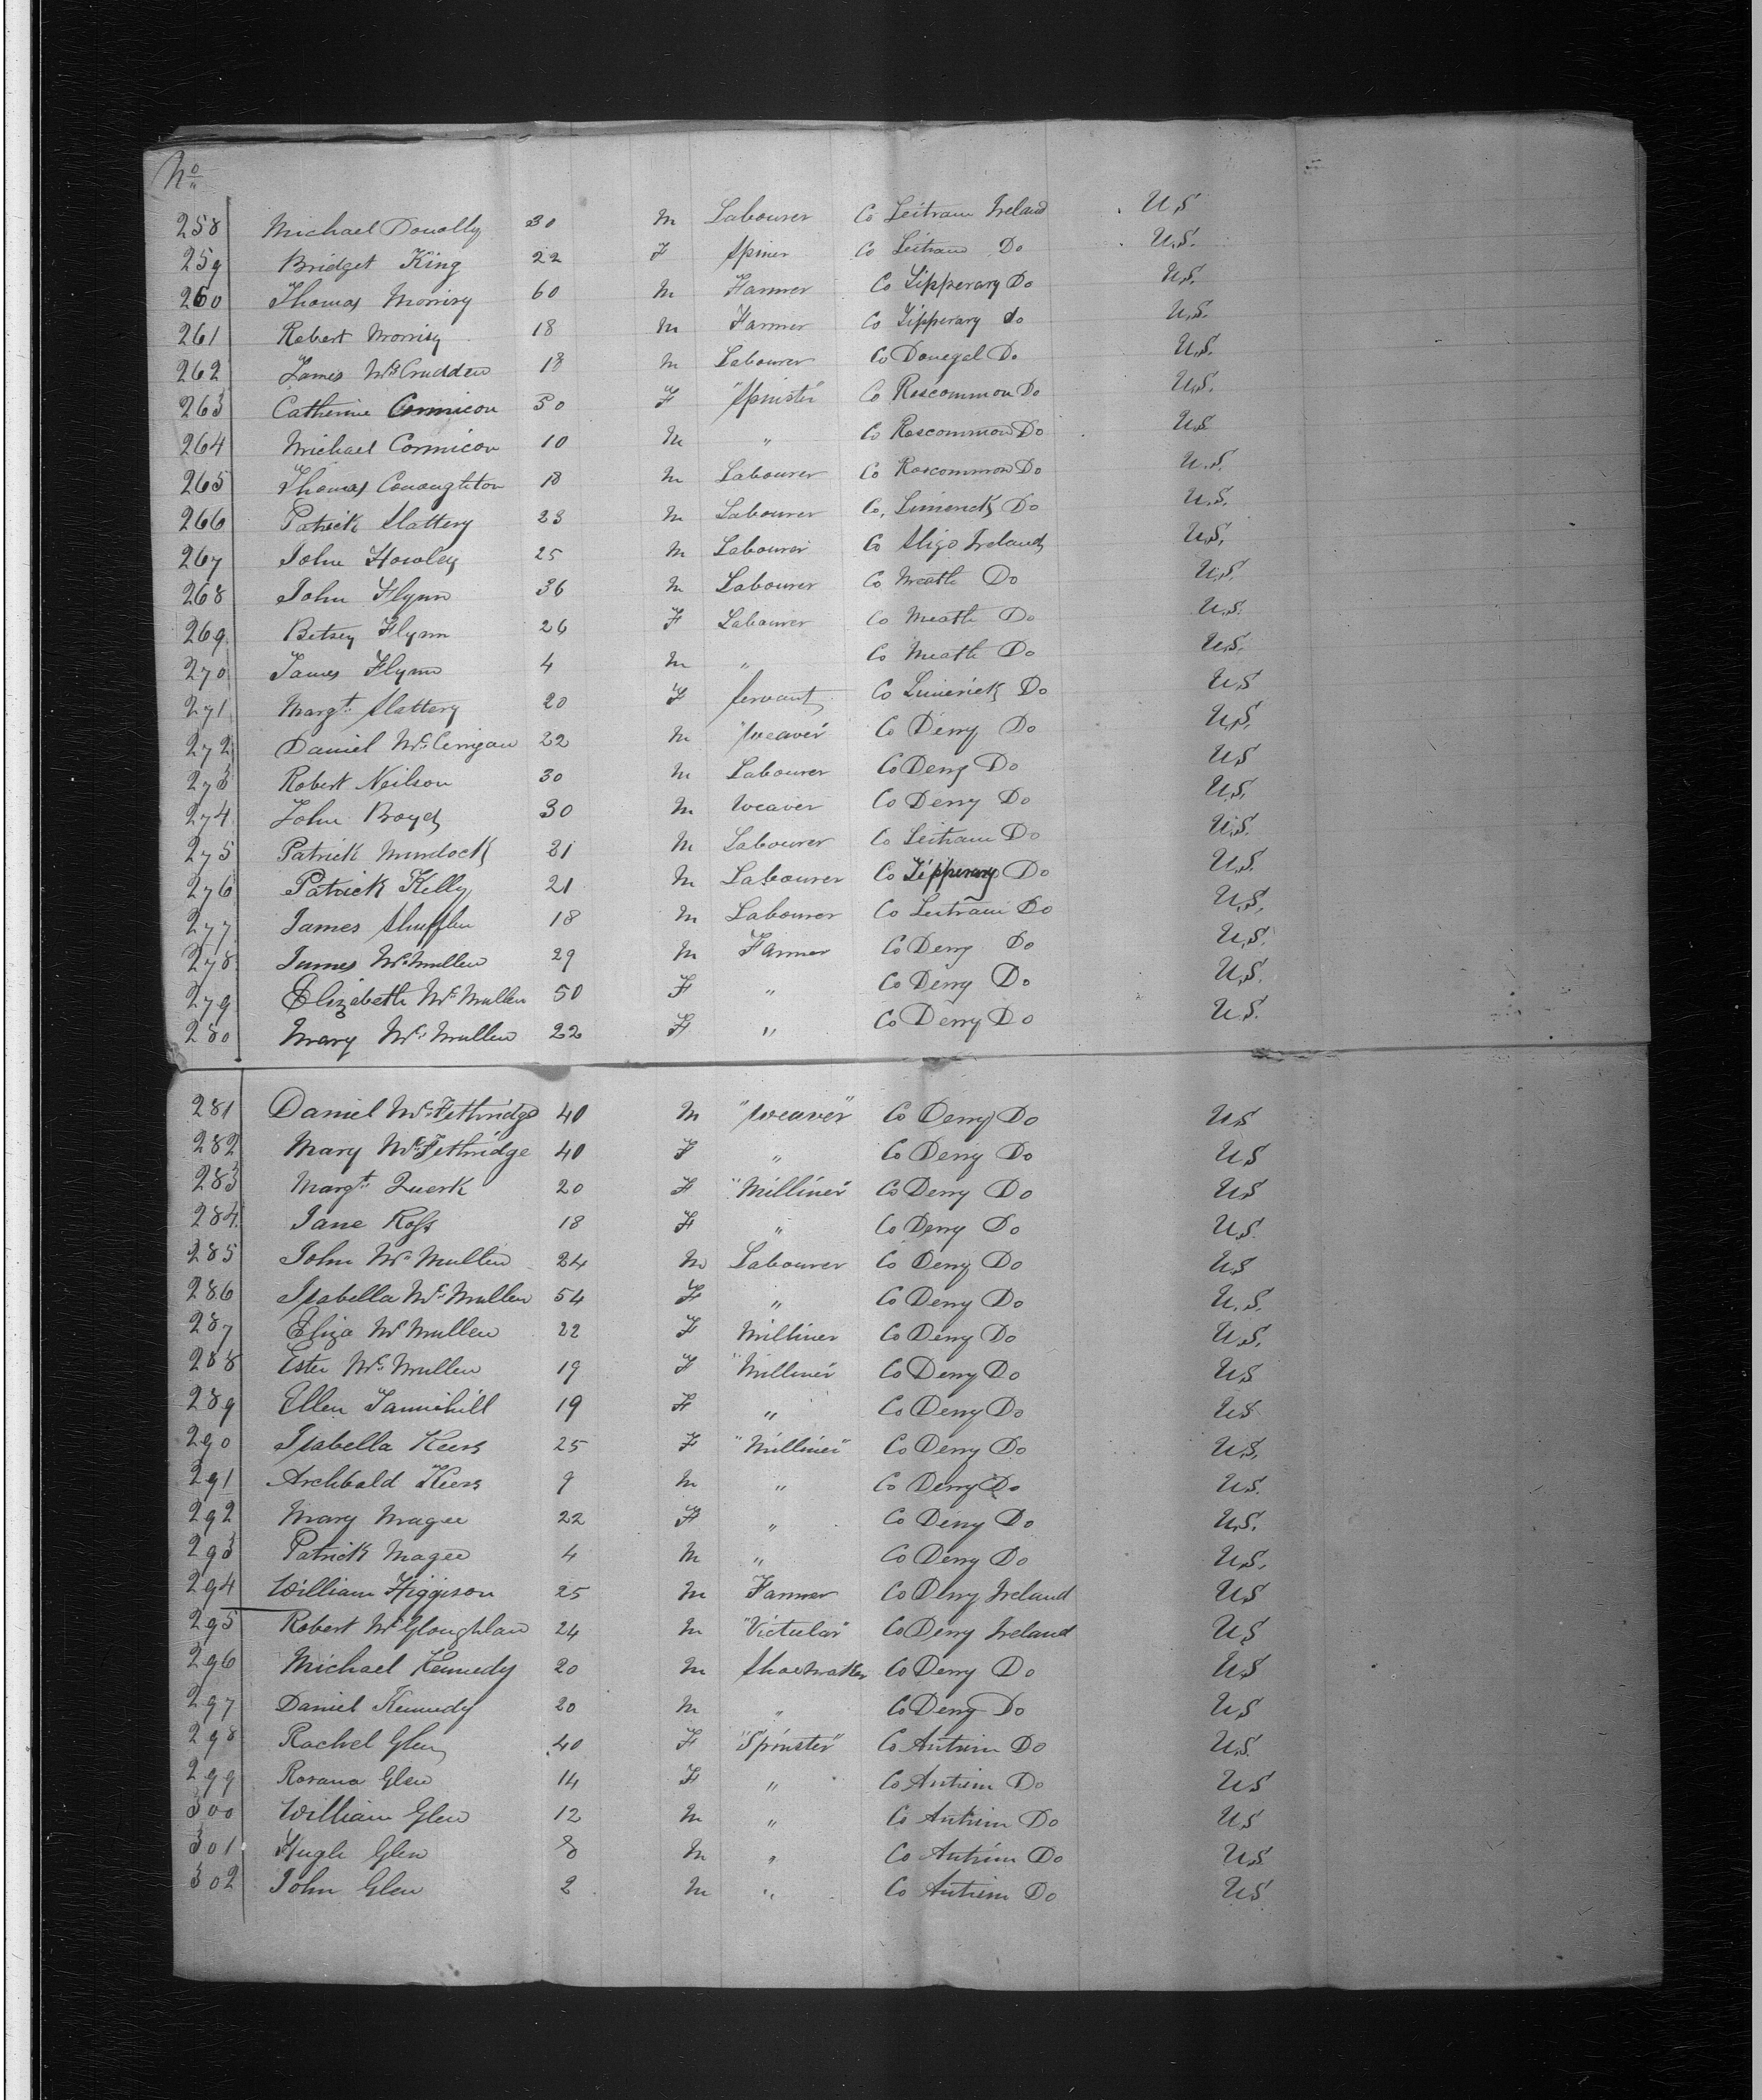 No
258 Michael Donolly 30 M Labourer Co Leitram Ireland U.S
259 Bridget King 22 F Spiner Co Leitram Do U.S.
260 Thomas Morrisy 60 M Farmer Co Tipperary Do U.S.
261 Robert Morrisy 18 M Farmer Co Tipperary do U.S.
262 James McCrudden 18 M Labourer Co Donegal Do U.S.
263 Catherine Cormican 50 F "Spinster" Co Roscommon Do U.S.
264 Michael Cormican 10 M " Co Roscommon Do U.S
265 Thomas Conoughton 18 M Labourer Co Roscommon Do U.S.
266 Patrick Slattery 23 M Labourer Co, Limerick Do U.S.
267 John Howley 25 M Labourer Co Sligo Ireland U.S.
268 John Flynn 36 M Labourer Co Meath Do U.S.
269 Betsey Flynn 26 F Labourer Co Meath Do U.S.
270 James Flynn 4 M " Co Meath Do U.S.
271 Margt. Slattery 20 F Servant Co Limerick Do U.S
272 Daniel Mc 22 M "Weaver" Co Derry Do U.S.
273 Robert Neilson 30 M Labourer Co Derry Do U.S
274 John Boyd 30 M Weaver Co Derry Do U.S.
275 Patrick Murdock 21 M Labourer Co Leitram Do U.S.
276 Patrick Kelly 21 M Labourer Co Tipperary Do U.S.
277 James 18 M Labourer Co Leitram Do U.S.
278 James McMullen 29 M Farmer Co Derry Do U.S.
279 Elizabeth McMullen 50 F " Co Derry Do U.S.
280 Mary McMullen 22 F " Co Derry Do U.S.
281 Daniel McFethridge 40 M "Weaver" Co Derry Do U.S
282 Mary McFethridge 40 F " Co Derry Do U.S
283 Margt. Querk 20 F "Milliner" Co Derry Do U.S
284 Jane Ross 18 F " Co Derry Do U.S.
285 John McMullen 24 M Labourer Co Derry Do U.S
286 Isabella McMullen 54 F " Co Derry Do U.S.
287 Eliza McMullen 22 F Milliner Co Derry Do U.S.
288 Ester McMullen 19 F "Milliner" Co Derry Do U.S
289 Ellen Tannihill 19 F " Co Derry Do U.S
290 Isabella Keers 25 F "Milliner" Co Derry Do U.S.
291 Archbald Keers 9 M " Co Derry Do U.S.
292 Mary Magee 22 F " Co Derry Do U.S.
293 Patrick Magee 4 M " Co Derry Do U.S.
294 William Higgison 25 M Farmer Co Derry Ireland U.S
295 Robert McGloughlan 24 M "Victular" Co Derry Ireland U.S
296 Michael Kennedy 20 M Shoemaker Co Derry Do U.S
297 Daniel Kennedy 20 M " Co Derry Do U.S
298 Rachel Glen 40 F "Spinster" Co Antrim Do U.S.
299 Rosana Glen 14 F " Co Antrim Do U.S
300 William Glen 12 M " Co Antrim Do U.S
301 Hugh Glen 8 M " Co Antrim Do U.S
302 John Glen 2 M " Co Antrim Do U.S